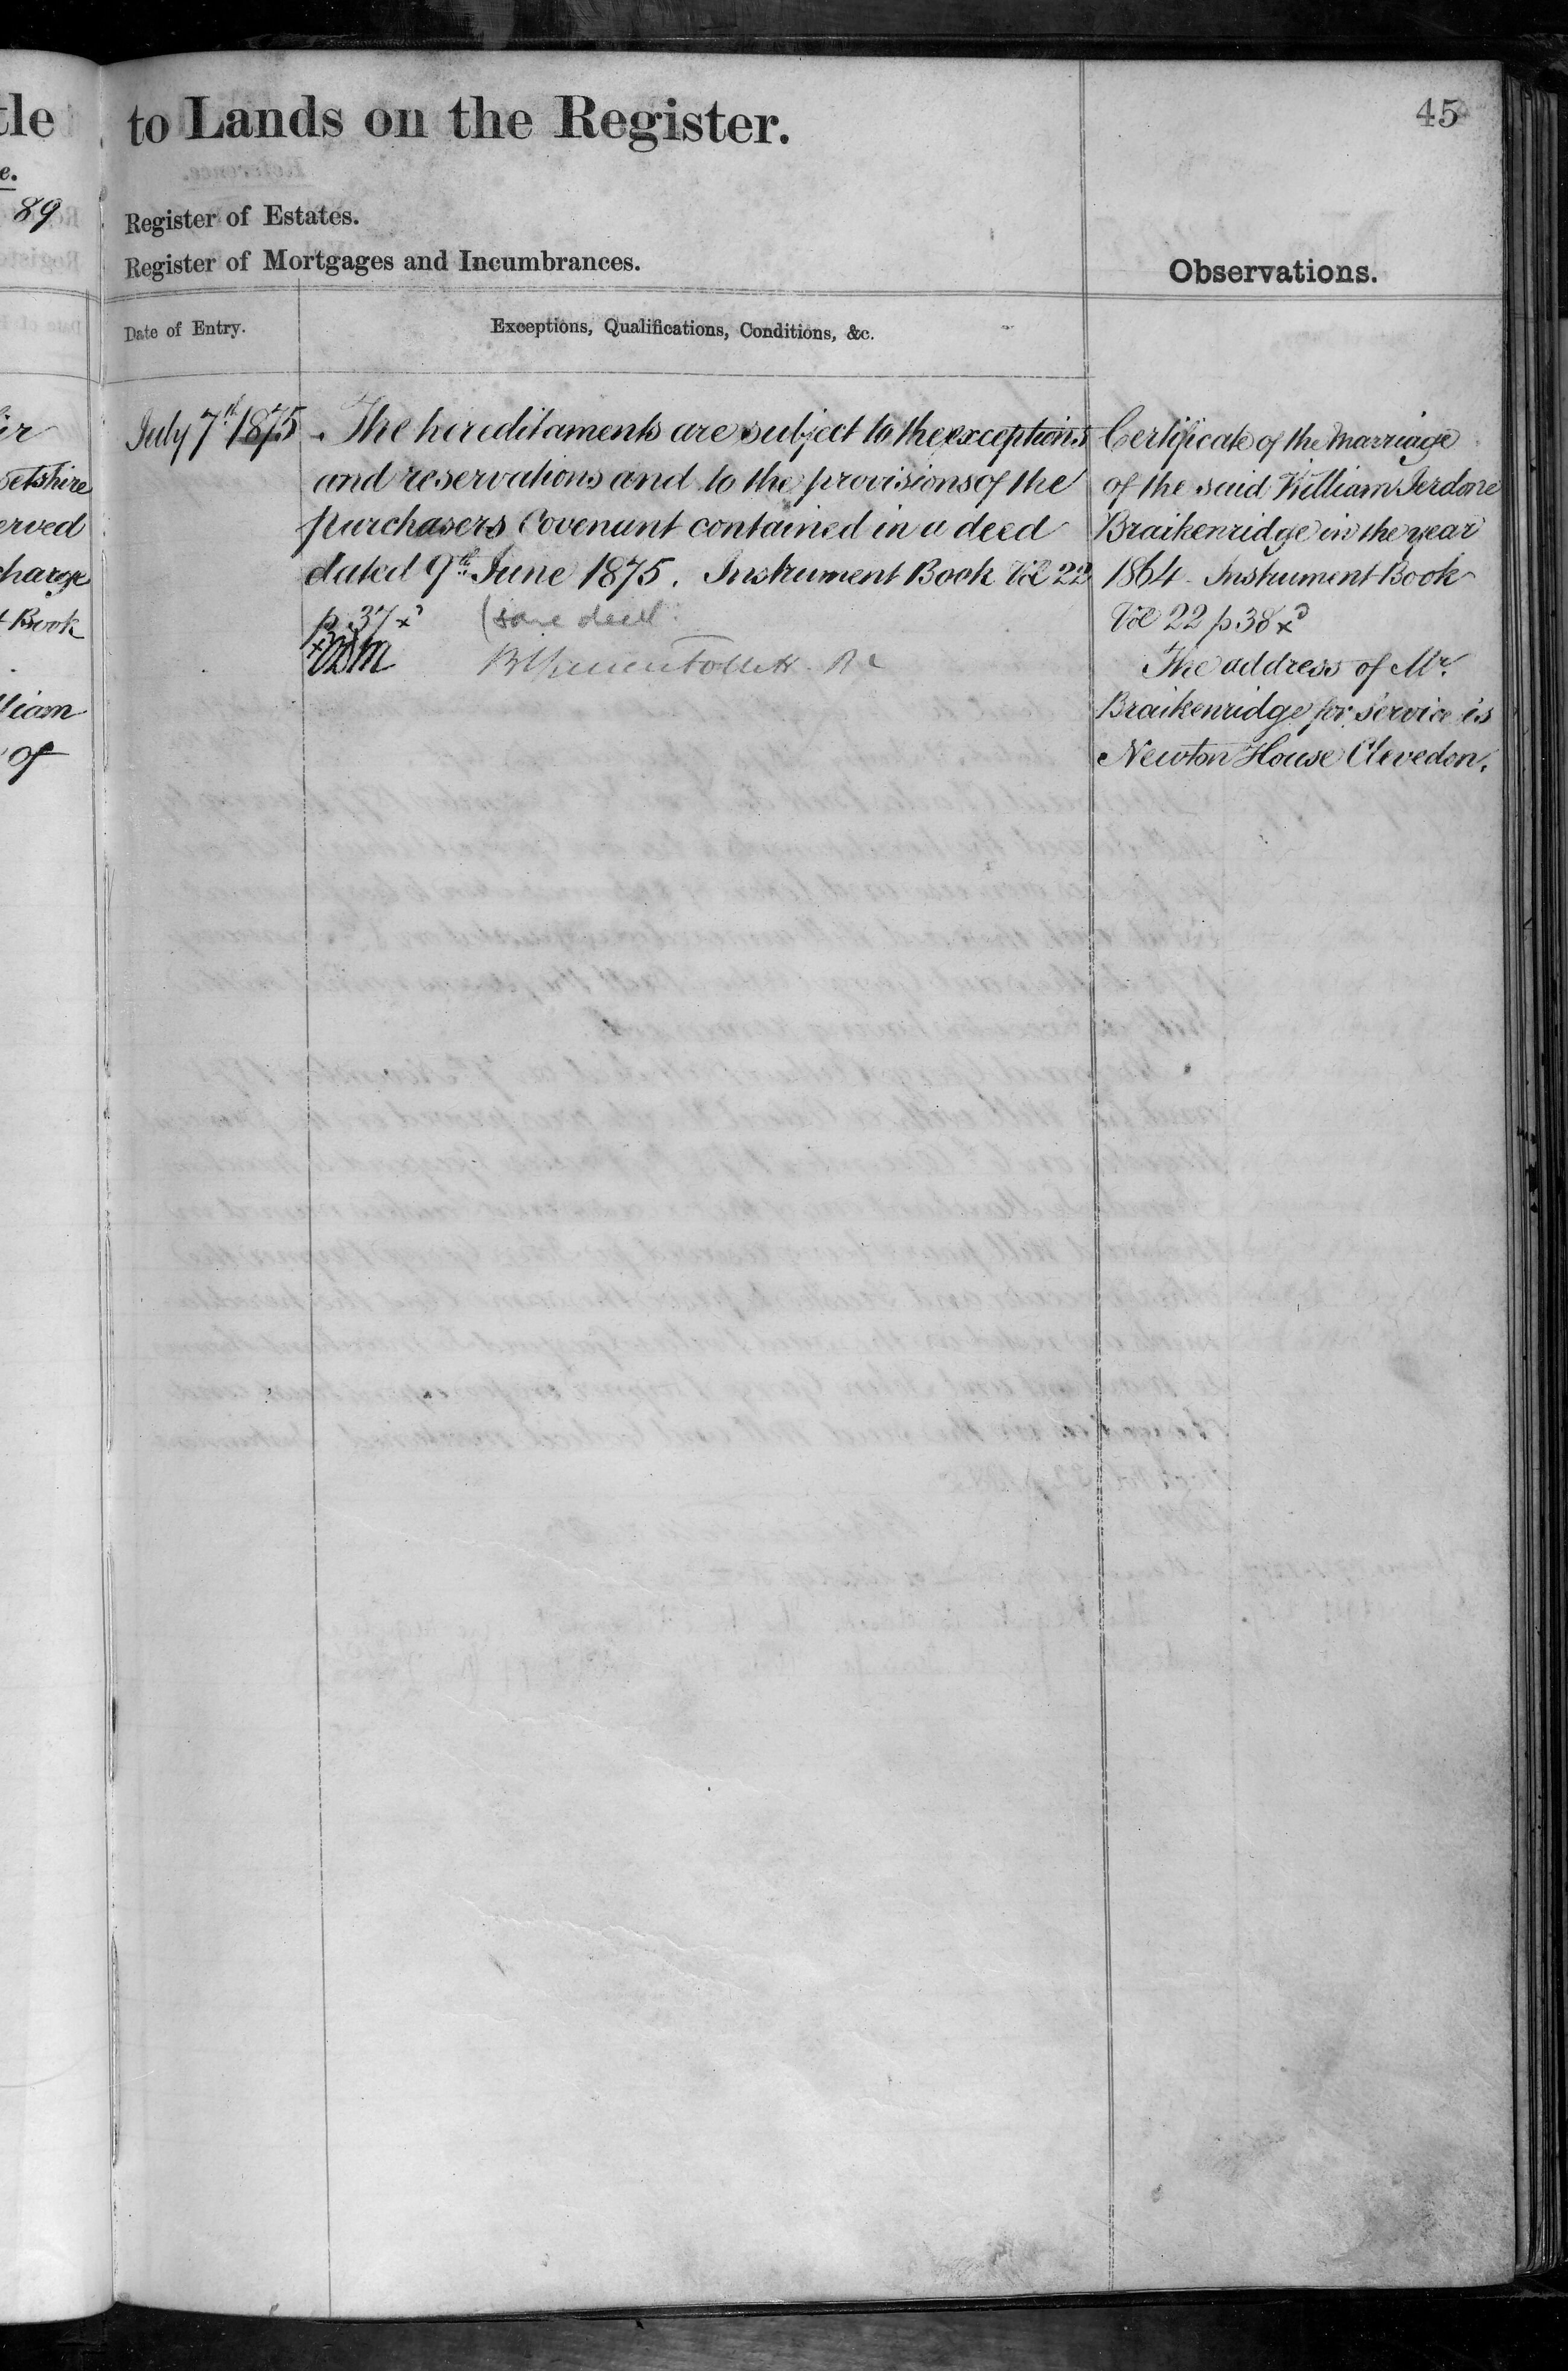 tle
e.
89
ir
setshire
erved
charge
t Book
liam
of
to Lands on the Register.
45
Register of Estates.
Register of Mortgages and Incumbrances.
Observations.
Date of Entry.
Exceptions, Qualifications, Conditions, &c.
July 7th 1875
The hereditaments are subject to the exceptions
and reservations and to the provisions of the
purchasers Covenant contained in a deed
dated 9th June 1875. Instrument Book Vol 22
p. 37 x
(same deed
Certificate of the Marriage
of the said William Jerdone
Braikenridge in the year
1864 - Instrument Book
Vol 22 p 38 x
The address of Mr.
Braikenridge for service is
Newton House Clevedon.